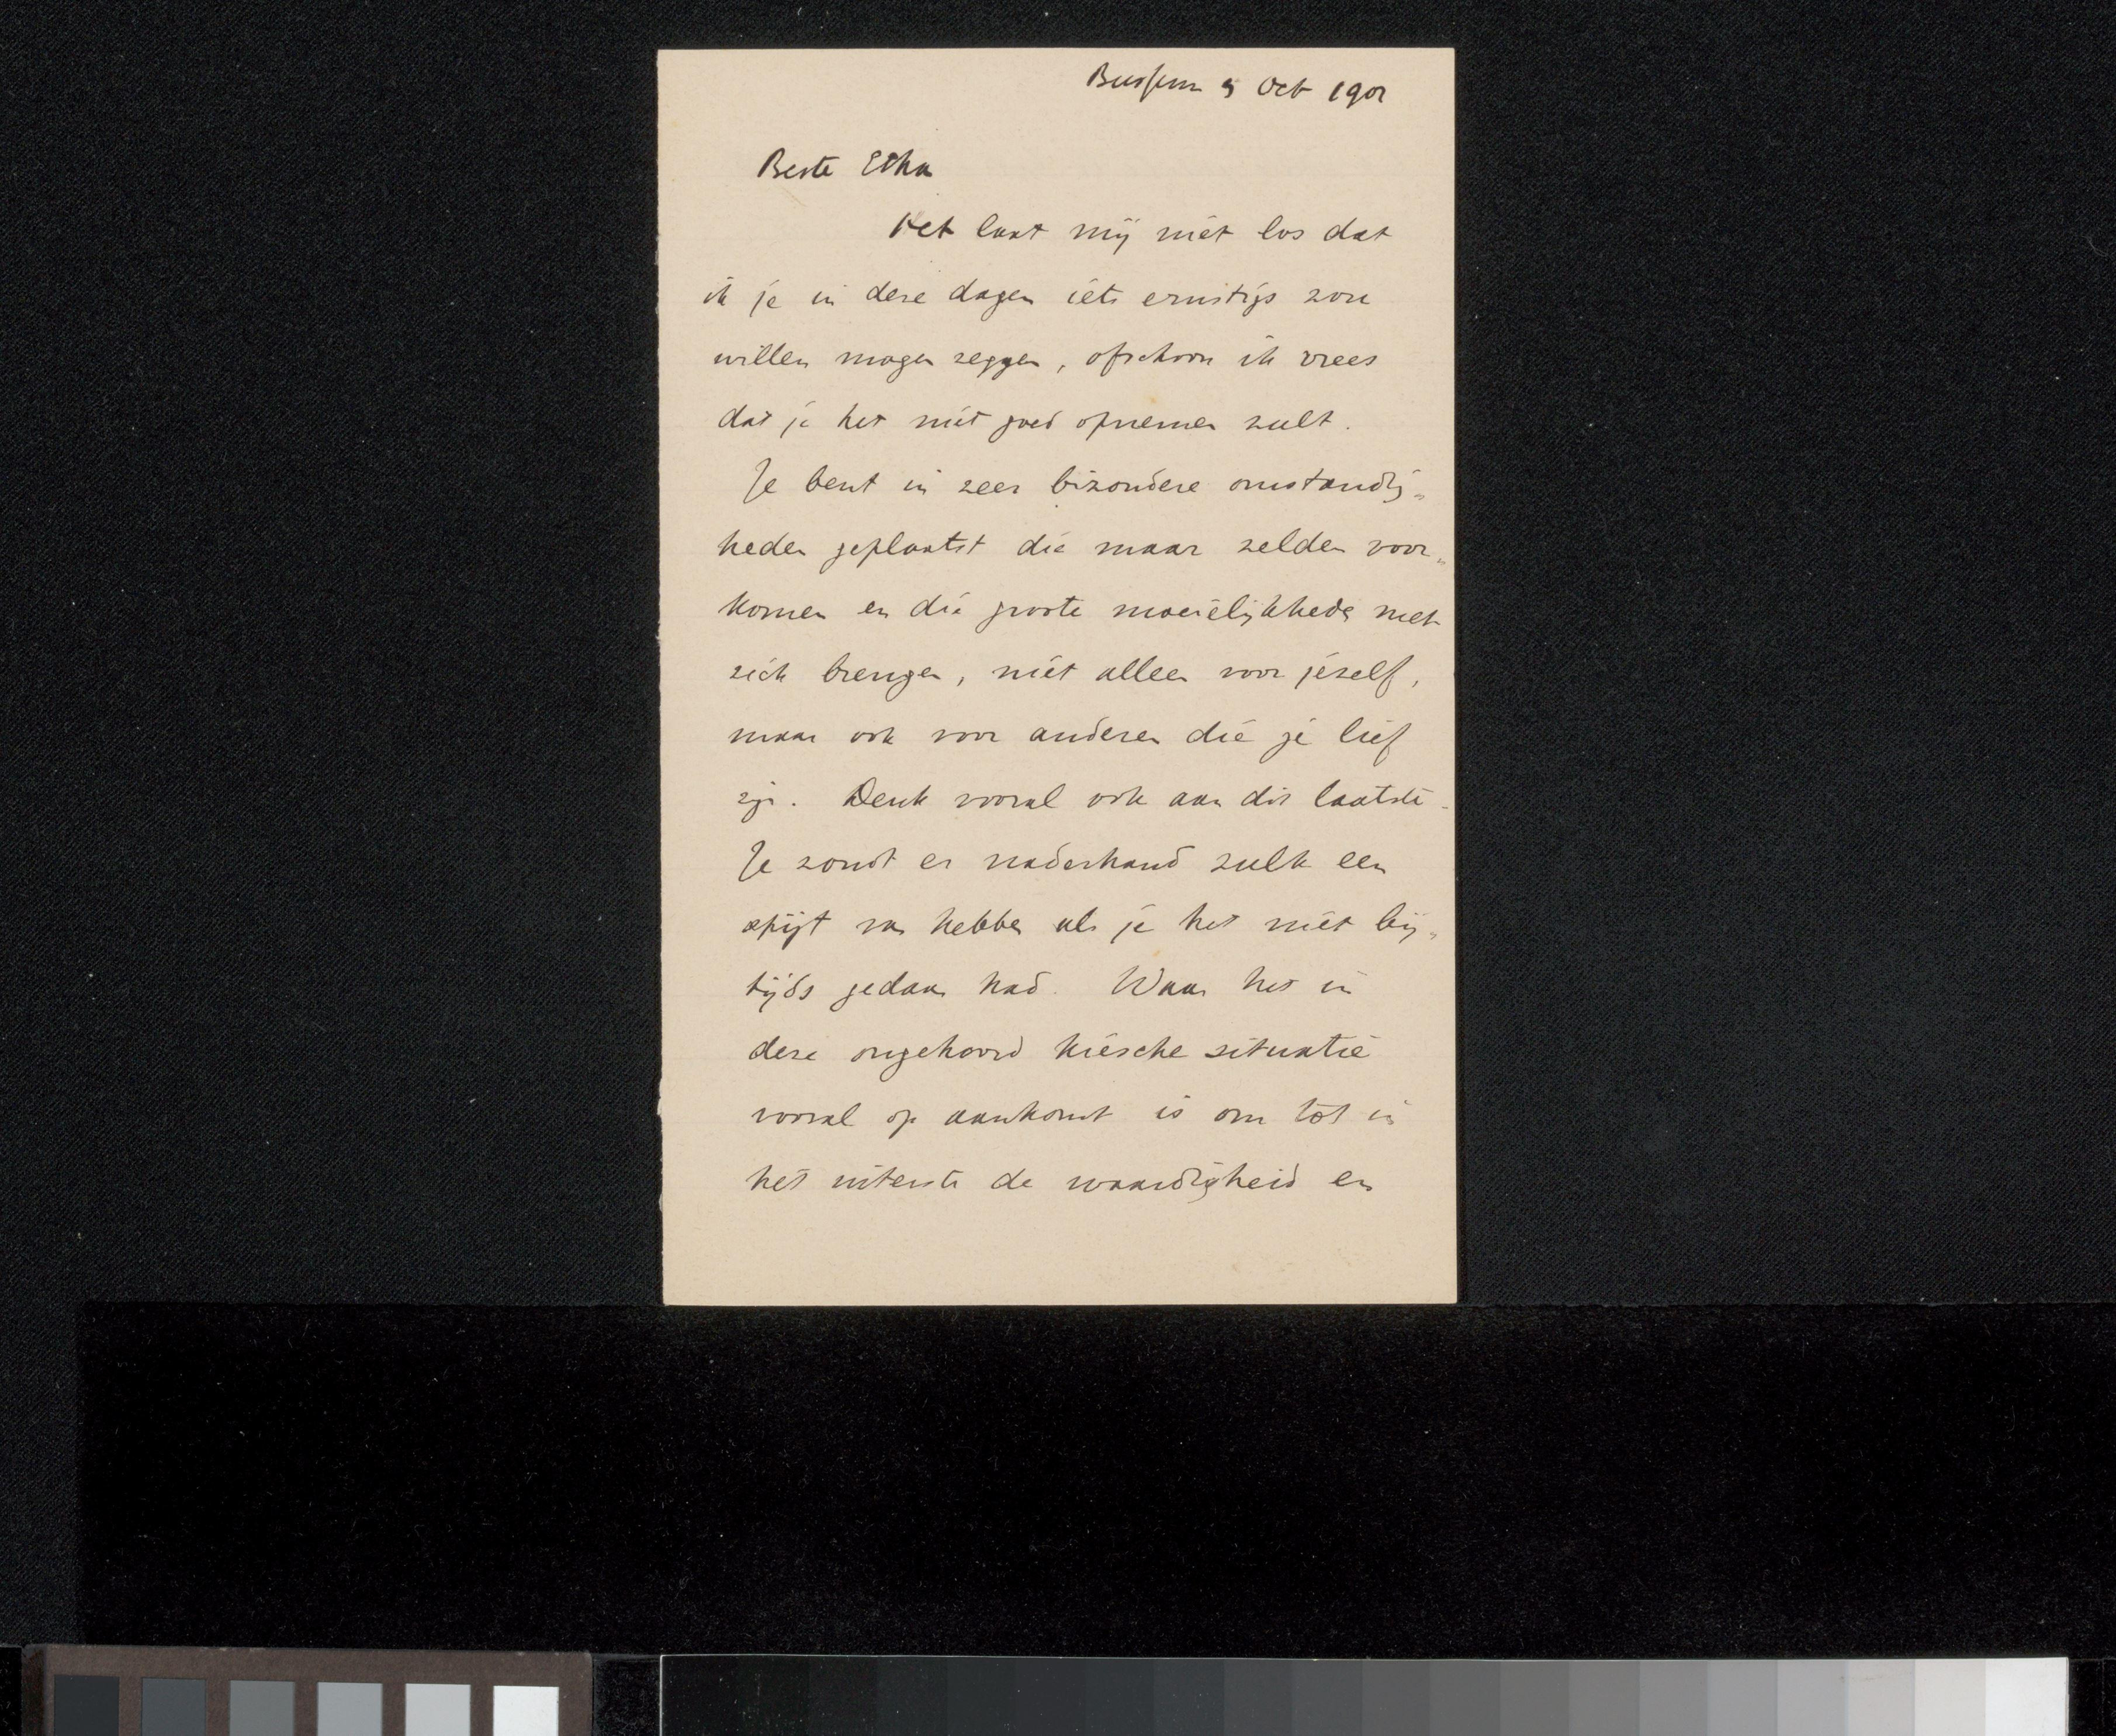 Bussum 5 Oct 1901
Beste Etha
Het laat mij niet los dat
ik je in deze dagen iets ernstigs zou
willen mogen zeggen, ofschoon ik vrees
dat je het niet goed opnemen zult.
Je bent in zeer bizondere omstandig„
heden geplaatst die maar zelden voor„
komen en die groote moeielijkheden met
zich brengen, niet alleen voor jezelf,
maar ook voor anderen die je lief
zijn. Denk vooral ook aan dit laatste.
Je zoudt er naderhand zulk een
spijt van hebben als je het niet bij„
tijds gedaan had. Waar het in
deze ongehoord kiesche situatie
vooral op aankomt is om tot in
het uiterste de waardigheid en